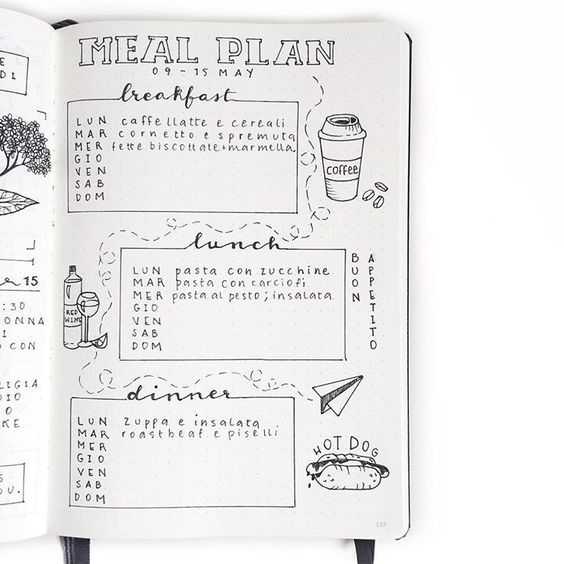 MEAL PLAN
09-15 MAY
breakfast
LUN caffellatte e cereali
MAR cornetto e spremuta
MER fette biscottate+marmella.
GIO
VEN
SAB
DOM
coffee
lunch
LUN pasta con zucchine
MAR pasta con carciofi
MER pasta al pesto; insalata
GIO
VEN
SAB
DOM
BUON
APPETITO
RED
WINE
dinner
LUN zuppa e insalata
MAR roastbeaf e piselli
MER
GIO
VEN
SAB
DOM
HOT DOG
E
DI
15
:30
ONNA
CON
LIGIA
DIO
O
KE
S
OU.